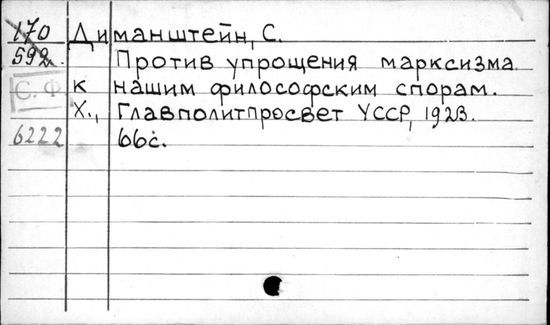 170 Диманштейн, С.
592. Против упрощения марксизма
С. Ф к нашим философским спорам.
Х., Главполитпросвет УССР, 1923.
6222 66с.